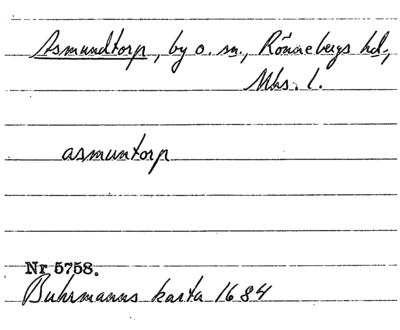 Asmundtorp, by o. sn., Rönnebergs hd,
Mhs. l.
asmuntorp
Nr 5758.
Buhrmanns karta 1684